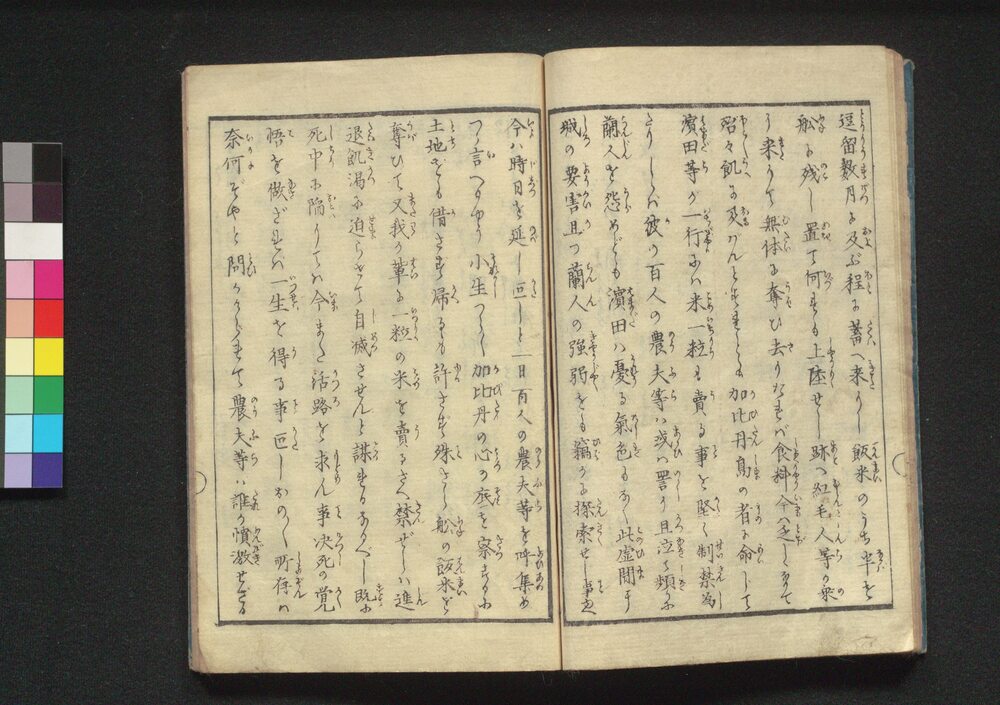 逗留数月に及ぶ程に蓄へ来りし飯米のうち半を
舩に残し置て何れも上陸せし跡へ紅毛人等が乗
り来りて無体に奪ひ去りたれバ食料今ハ乏しくなりて
皆々飢に及バんとすれども加比丹島の者に命して
濱田等が一行にハ米一粒も賣る事を堅く制禁為
たりしかバ彼の百人の農夫等ハ或ハ詈り且泣て頻に
蘭人を怨めども濱田ハ憂る氣色もなく此虚間に
城の要害且つ蘭人の強弱をも竊かに探索せし事
今ハ時日を延し叵しと一日百人の農夫等を呼集め
つゝ言へるやう小生つら〳〵加比丹の心の底を察するに
土地をも借さず帰るをも許さず殊さら舩の飯米を
奪ひて又我が輩に一粒の米を賣るさへ禁ぜしハ進
退飢渇に迫らせて自滅させんと謀れるなるべし既に
死中に陥りてハ今また活路を求ん事决死の覚
悟を做ざれバ一生を得る事叵しおの〳〵所存ハ
奈何ぞやと問かくれて農夫等ハ誰か憤激せざる